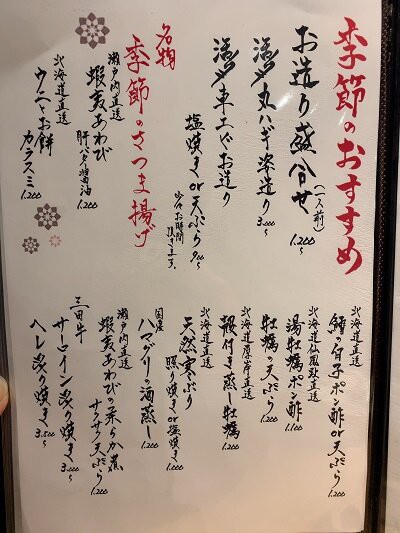 季節のおすすめ
お造り盛合せ
(一人前)
1.200
活〆丸ハギ姿造り
3.000
活〆車エビお造り
塩焼き or 天ぷら
900
名物
季節のさつま揚げ
お時間
頂きます。
瀬戸内直送
蝦夷あわび
肝バター醤油
1.200
北海道直送
ウニとお餅
カラスミ
1.200
北海道直送
鱈の白子ポン酢or天ぷら
1.200
北海道仙鳳趾直送
湯牡蠣ポン酢
1.100
牡蠣の天ぷら
1.200
北海道厚岸直送
殻付き蒸し牡蠣
1.200
北海道直送
天然寒ぶり
照り焼きor塩焼き
1.000
国産
ハマグリの酒蒸し
1.200
瀬戸内直送
蝦夷あわびの柔らか煮
サクサク天ぷら
1.200
三田牛
サーロイン炙り焼き
3.000
ヘレ炙り焼き
3.500